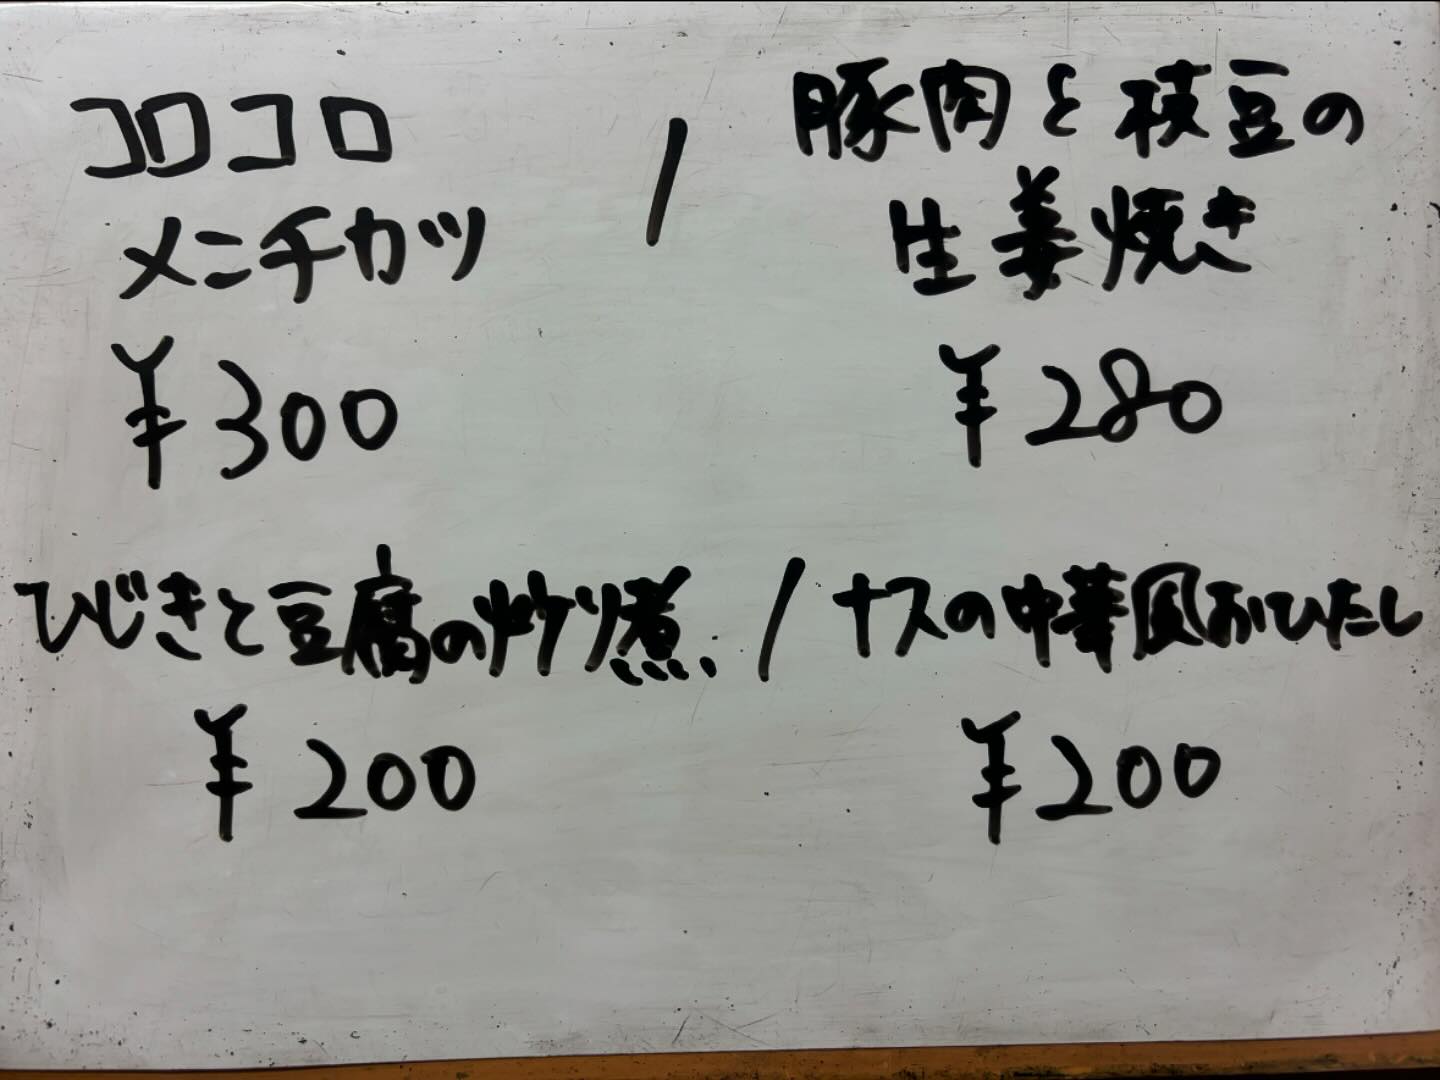 コロコロ
メニチカツ
¥300
/
豚肉と枝豆の
生姜焼き
¥280
ひじきと豆腐の炒り煮
¥200
/
ナスの中華風おひたし
¥200